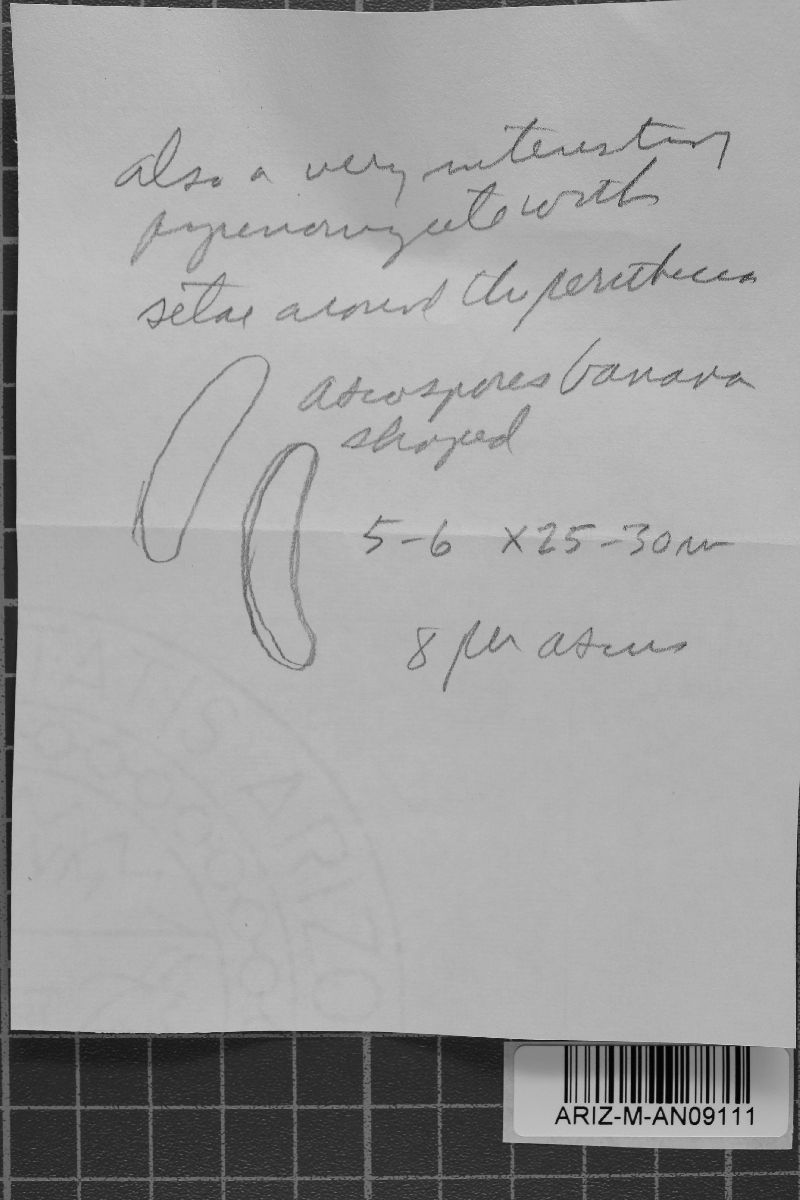 also a very interesting
pyrenomycete with
setae around the perithecia
ascospores banana
shaped
5-6 x 25-30 m
8 per ascus
ARIZ-M-AN09111